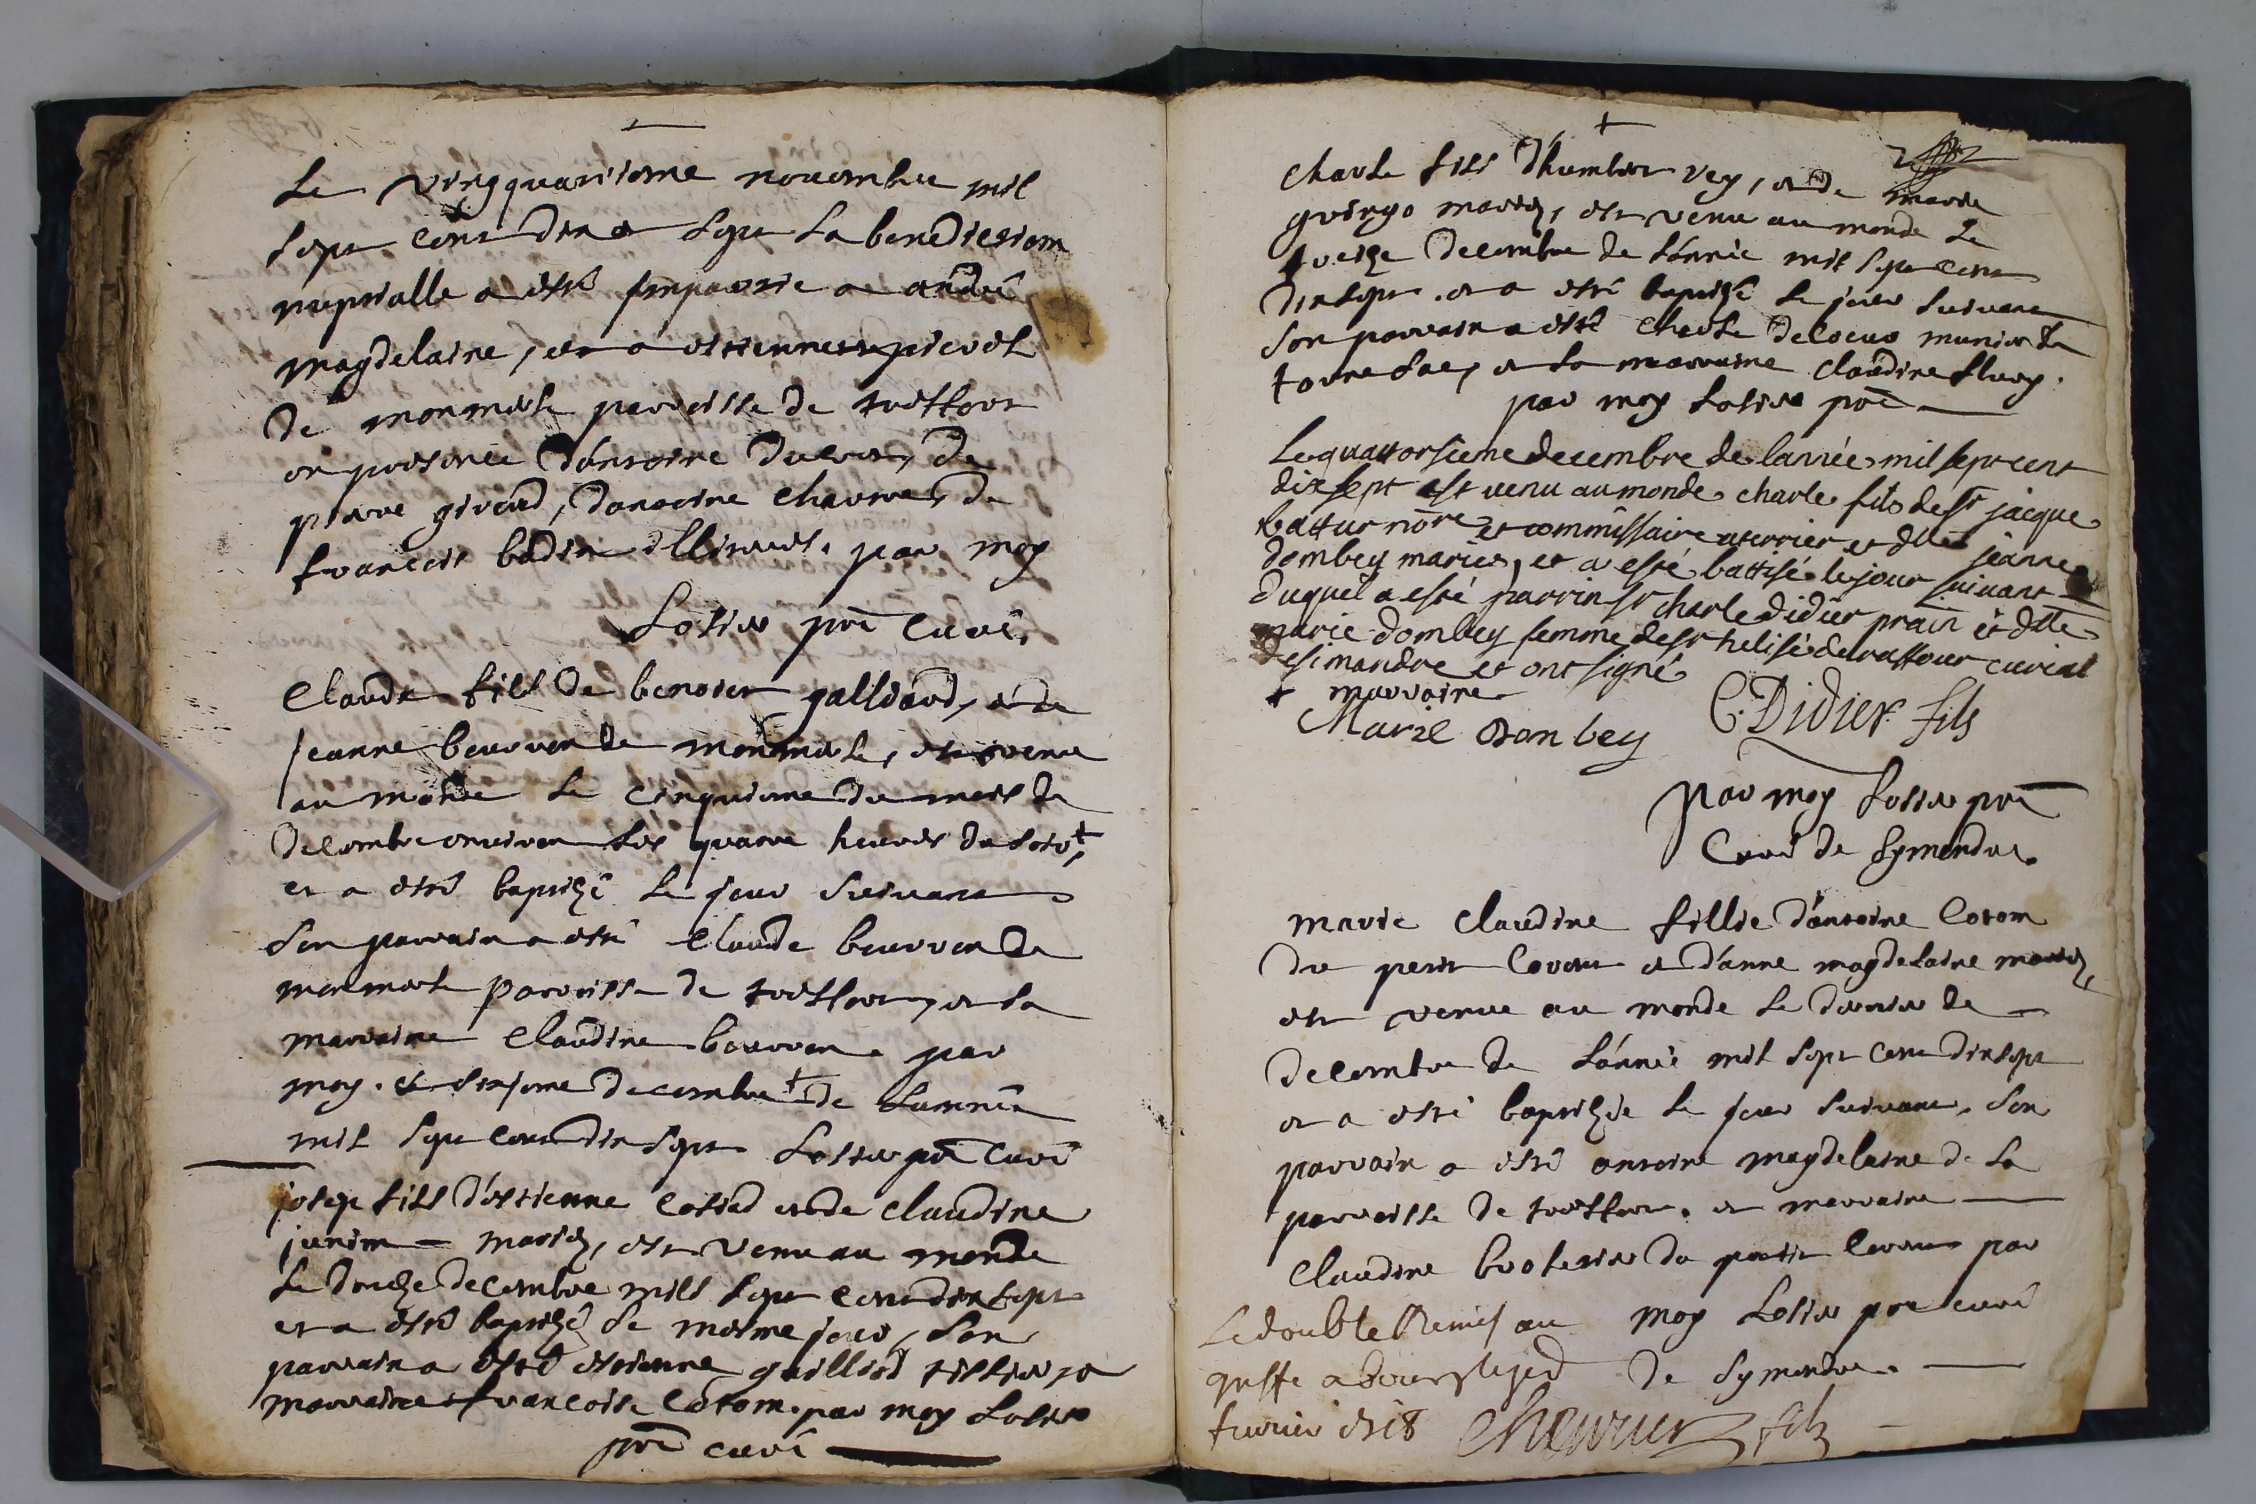 Le vingquatriesme novembre mil
sept cent dix et sept la benediction
nuptialle a esté impartie a andré
magdelaine, et a estiennette picvet
de monmerle paroisse de treffort
en presence d'antoine
pierre girard, d'antoine de
francois badin illiterés. par moy
Losier ptre curé.
Claude fils de benoist galliard, et de
jeanne beurron de monmerle, est venu
au monde le cinquieme du mois de
decembre environ les quatre heures du soir +,
et a esté baptizé le jour suivant
son parrain a esté claude beurron de
monmerle parroisse de treffort, et la
marraine claudine beurron. par
moy. le sixieme decembre + de l'année
mil sept cent dix sept Losier ptre curé
josep fils d'estienne et de claudine
mariez, est venu au monde
le douze decembre mill sept cent dix sept
et a esté baptizé le mesme jour, son
parrain a esté estienne gaillard la
marraine francoise cotom. par moy Losier
ptre curé
+
charle fils d'humbert vey, et de marie
mariez, est venu au monde le
treize decembre de l'année mil sept cent
dix sept. et a esté baptizé le jour suivant
son parrain a esté charle munier de
et la marraine claudine
par moy Losier ptre
Le quattorsieme decembre de lannée mil sept cent
dix sept est venu au monde charle fils de sr jacque
battur nore et commissaire a terrier et dlle jeanne
dombey mariés, et a esté battisé le jour suivant
duquel a esté parrin sr charle didier prain et dlle
marie dombey femme de sr helisé de rattour curial
desimandre et ont signé
+ marraine
Marie Donbey C. Didier fils
par moy Losier ptre
Curé de Symandre.
marie claudine fillie d'antoine Cotom
du petit Corent et d'anne magdelaine mariez,
est venue au monde le dernier de
decembre de l'année mil sept cent dix sept
et a esté baptizée le jour suivant. son
parrain a esté antoine magdelaine de la
parroisse de treffort. et marraine
claudine du petit corent par
moy Losier ptre curé
de Symandre.
Le double Remis au
greffe a bourg le
fevrier 1718 Chevrier fils